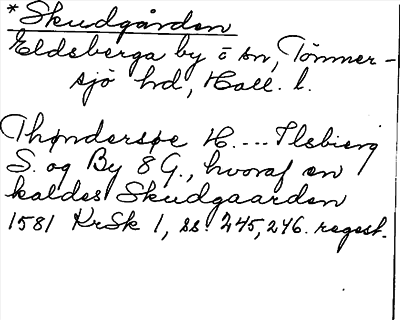 *Skudgården
Eldsberga by o sn, Tönner-
sjö hd, Hall. l.
Thøndersøe H.... Ilsbierg
S. og By 8 G., hvoraf en
kaldes Skudgaarden
1581 KrSk 1, ss. 245, 246. regest.